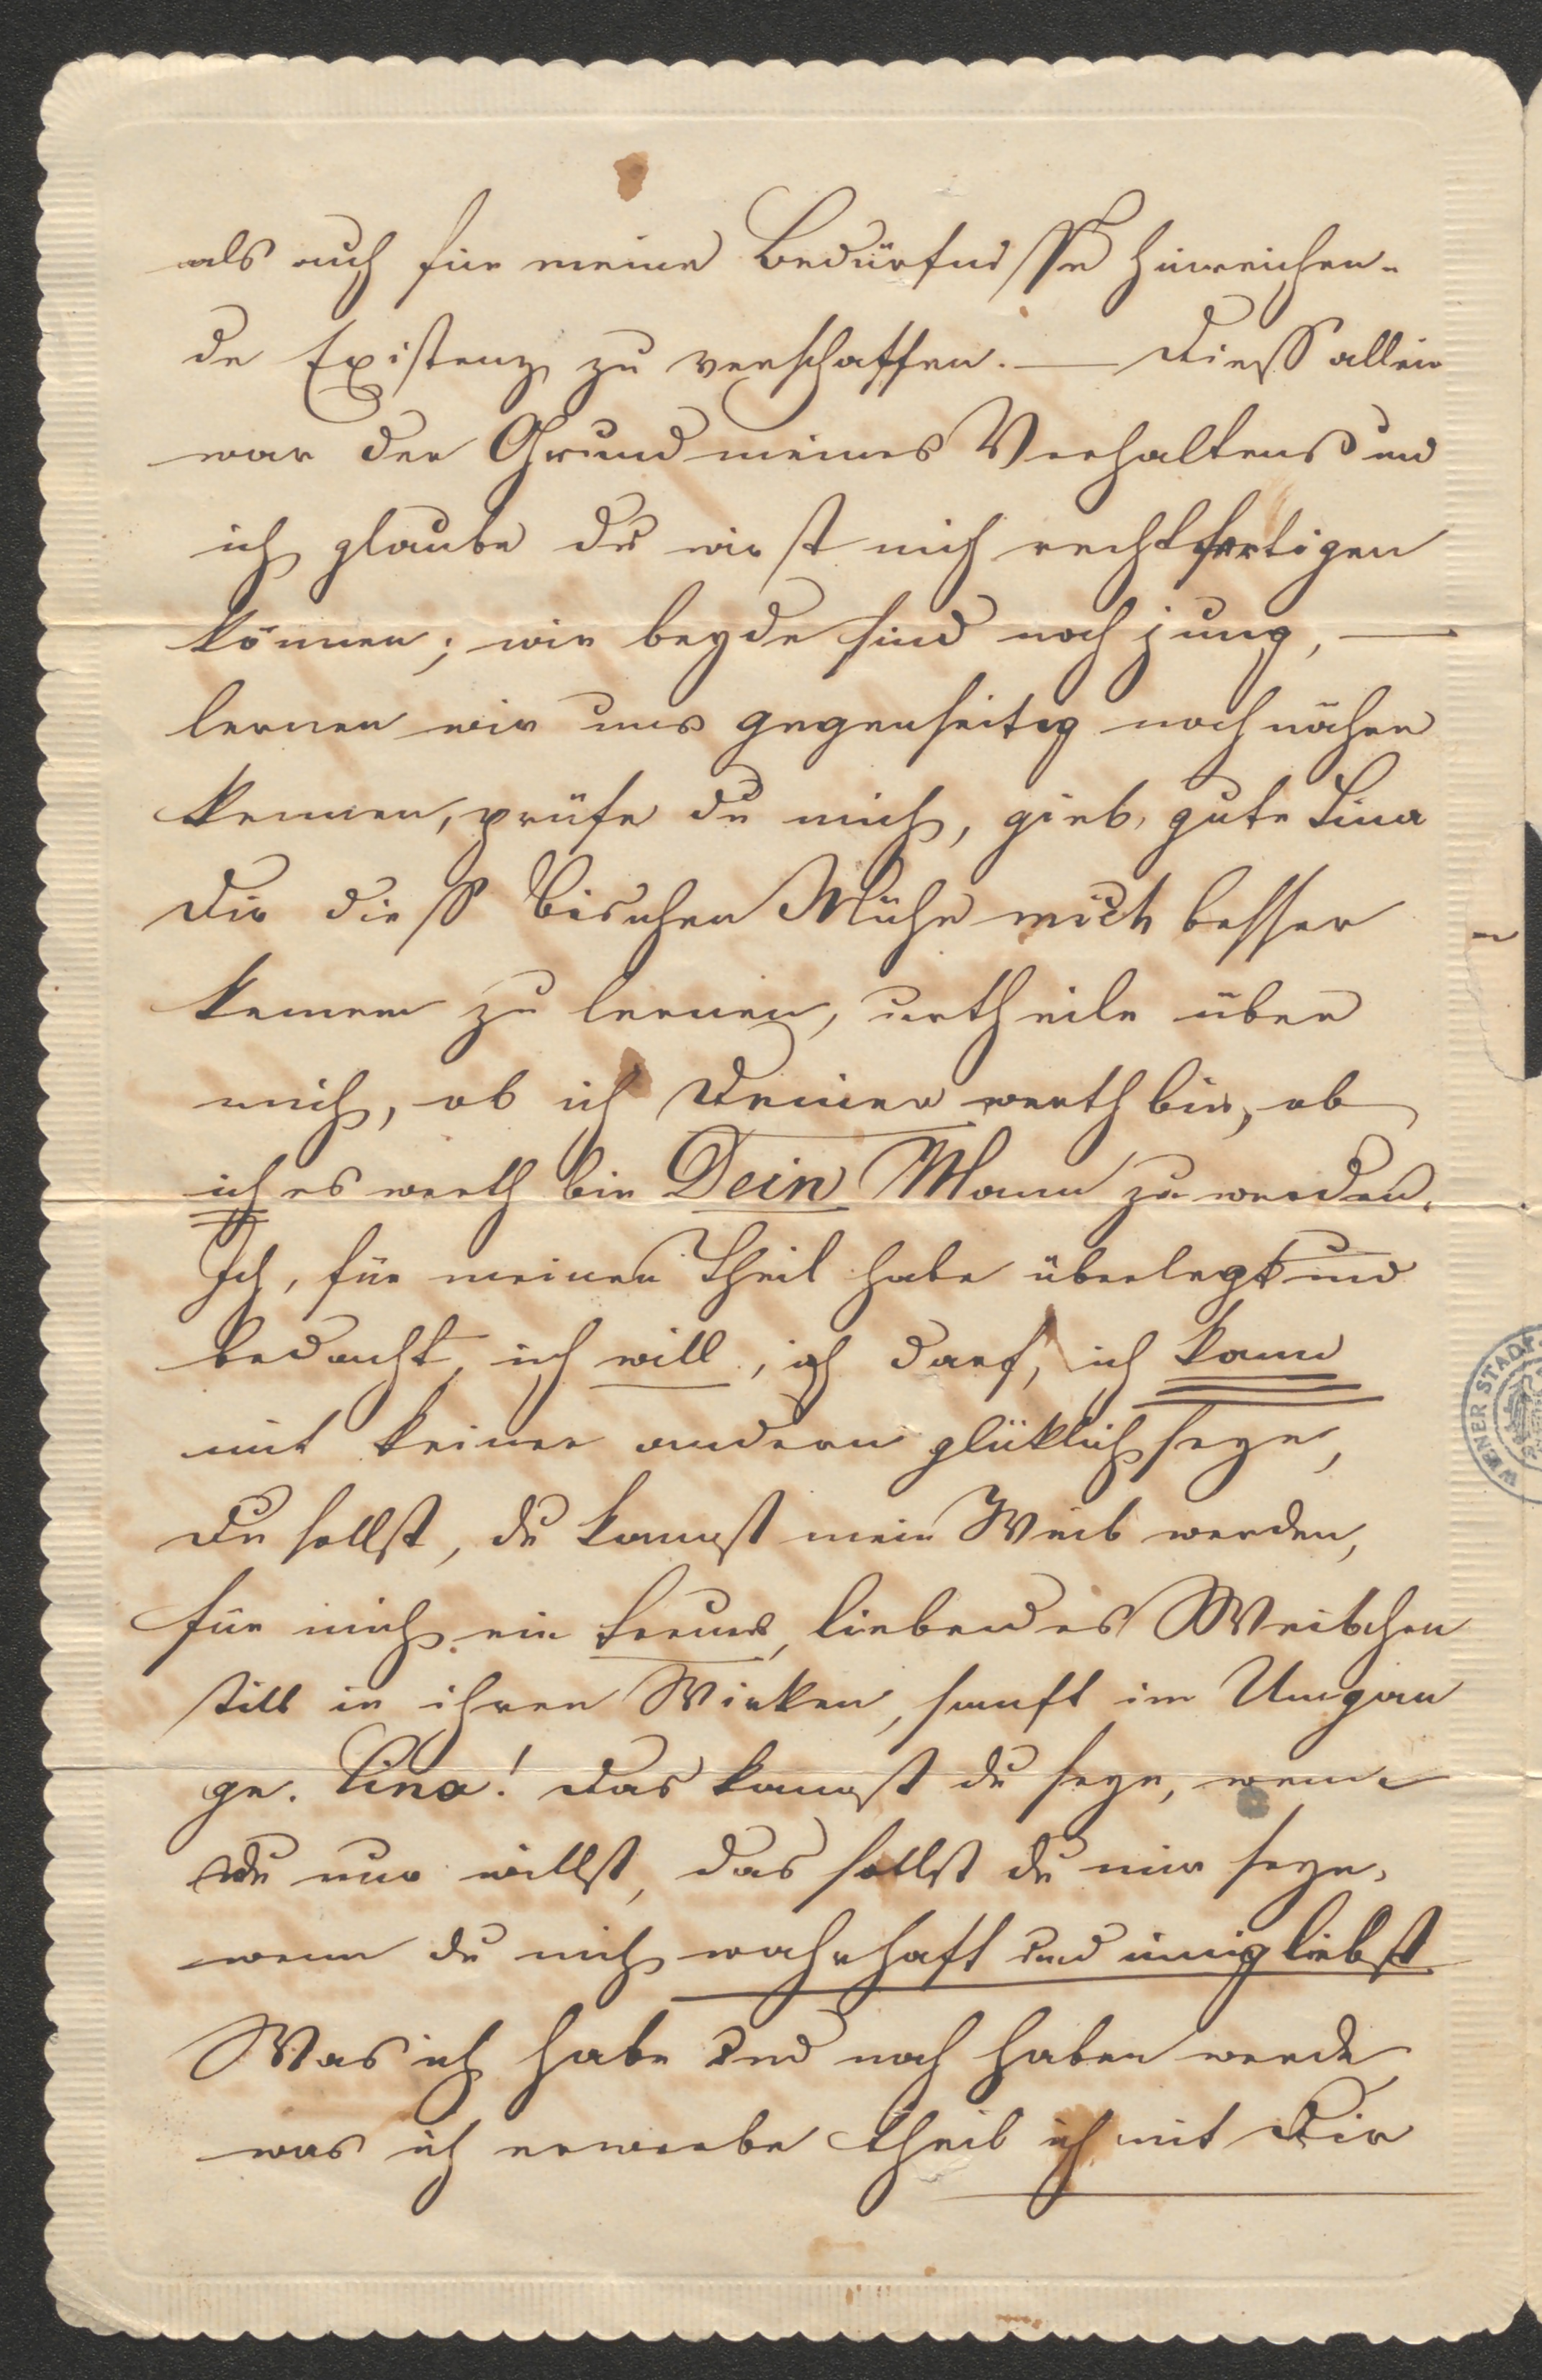 als auch für meine Bedürfnisse hinreichen-
de Existenz zu verschaffen. — Dieß allein
war der Grund meines Verhaltens und
ich glaube du wirst mich rechtfertigen
können; wir beyde sind noch jung, —
lernen wir uns gegenseitig noch näher
kennen, prüfe du mich, gieb, gute Lina
Dir dieß bischen Mühe mich besser
kennen zu lernen, urtheile über
mich, ob ich Deiner werth bin, ob
ich es werth bin Dein Mann zu werden.
Ich, für meinen Theil habe überlegt und
bedacht, ich will, ich darf, ich kann
mit keiner andern glüklich seyn,
Du sollst, du kannst mein Weib werden,
für mich ein treues, liebendes Weibchen
still in ihren Wirken, sanft im Umgan
ge. Lina! das kannst du seyn, wenn
du nur willst, das sollst du mir seyn,
wenn du mich wahrhaft und innig liebst
Was ich habe und noch haben werde
was ich erwerbe theil ich mit Dir
WIENER STADT